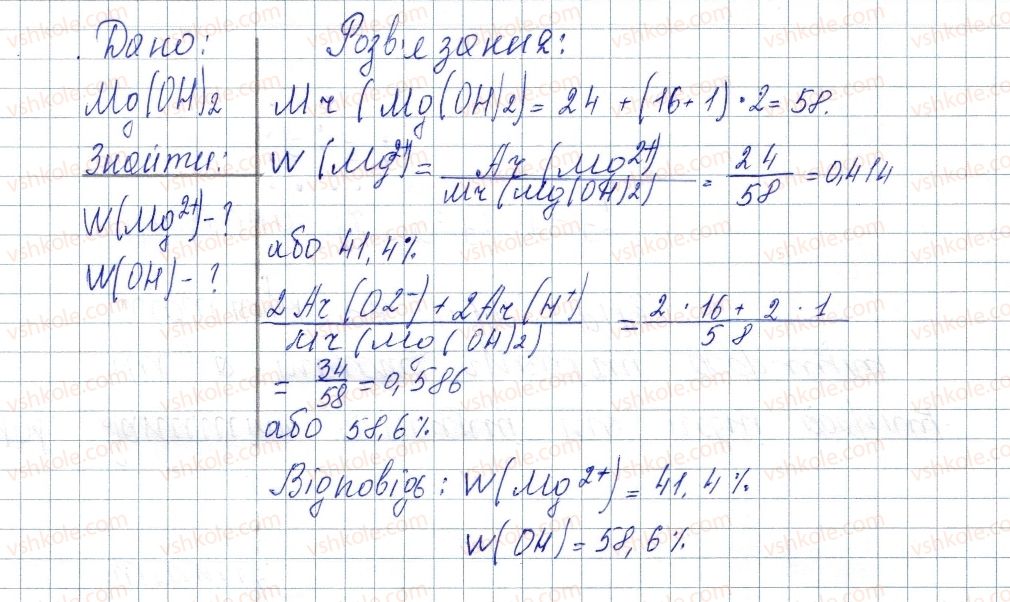 Дано:
Mg(OH)2
Знайти:
W(Mg2+) - ?
W(OH) - ?
Розв'язання:
Mr (Mg(OH)2) = 24 + (16+1) · 2 = 58.
W (Mg2+) = Ar (Mg2+) / Mr (Mg(OH)2) = 24 / 58 = 0,414
або 41,4%
2Ar (O2-) + 2Ar (H+) / Mr (Mg(OH)2) = 2 · 16 + 2 · 1 / 58
= 34 / 58 = 0,586
або 58,6%
Відповідь: W(Mg2+) = 41,4%
W(OH) = 58,6%